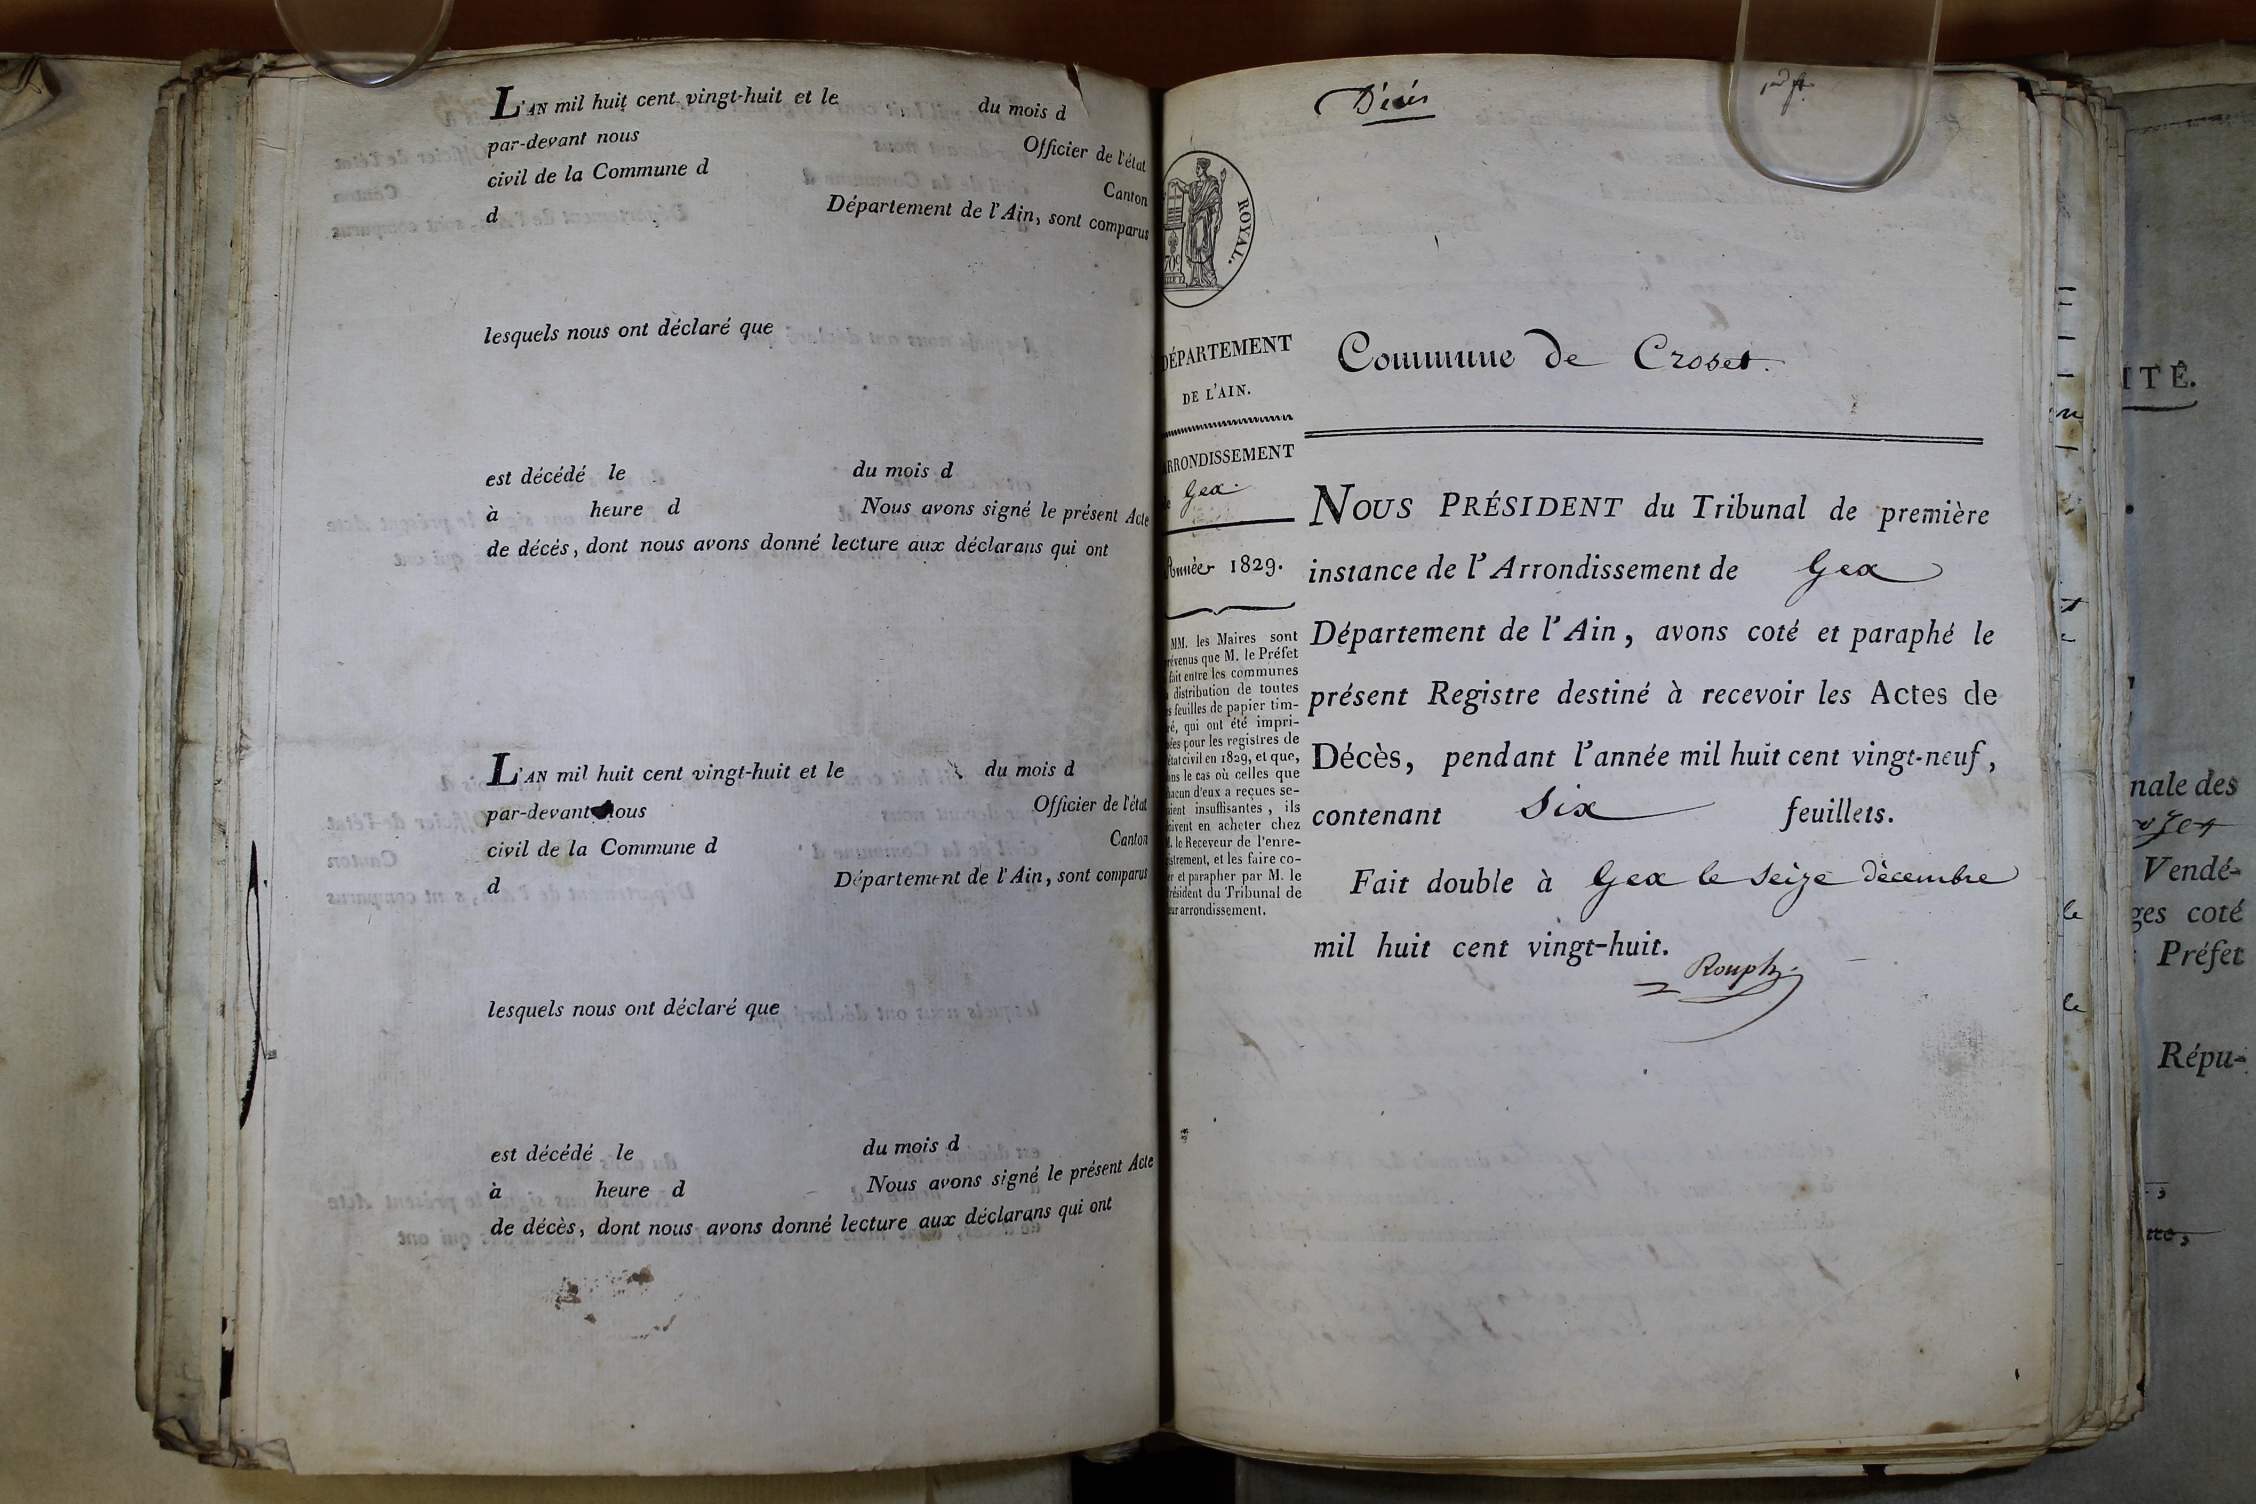 L'AN mil huit cent vingt-huit et le du mois d
par-devant nous Officier de l'état
civil de la Commune d Canton
d Département de l'Ain, sont comparus
lesquels nous ont déclaré que
est décédé le du mois d
à heure d Nous avons signé le présent Acte
de décès, dont nous avons donné lecture aux déclarans qui ont
L'AN mil huit cent vingt-huit et le du mois d
par-devant nous Officier de l'état
civil de la Commune d Canton
d Département de l'Ain, sont comparus
lesquels nous ont déclaré que
est décédé le du mois d
à heure d Nous avons signé le présent Acte
de décès, dont nous avons donné lecture aux déclarans qui ont
Décès
ROYAL.
70c
DÉPARTEMENT
DE L'AIN.
ARRONDISSEMENT
de Gex.
Année 1829.
MM. les Maires sont
révenus que M. le Préfet
fait entre les communes
distribution de toutes
s feuilles de papier tim-
ré, qui ont été impri-
ées pour les registres de
état civil en 1829, et que,
ans le cas où celles que
hacun d'eux a reçues se-
aient insuffisantes, ils
oivent en acheter chez
M. le Receveur de l'enre-
istrement, et les faire co-
er et parapher par M. le
Président du Tribunal de
eur arrondissement.
Commune de Croset.
NOUS PRÉSIDENT du Tribunal de première
instance de l'Arrondissement de Gex
Département de l'Ain, avons coté et paraphé le
présent Registre destiné à recevoir les Actes de
Décès, pendant l'année mil huit cent vingt-neuf,
contenant Six feuillets.
Fait double à Gex le seize décembre
mil huit cent vingt-huit.
Rouph
ITÉ.
nale des
Vendé-
ges coté
Préfet
Répu-